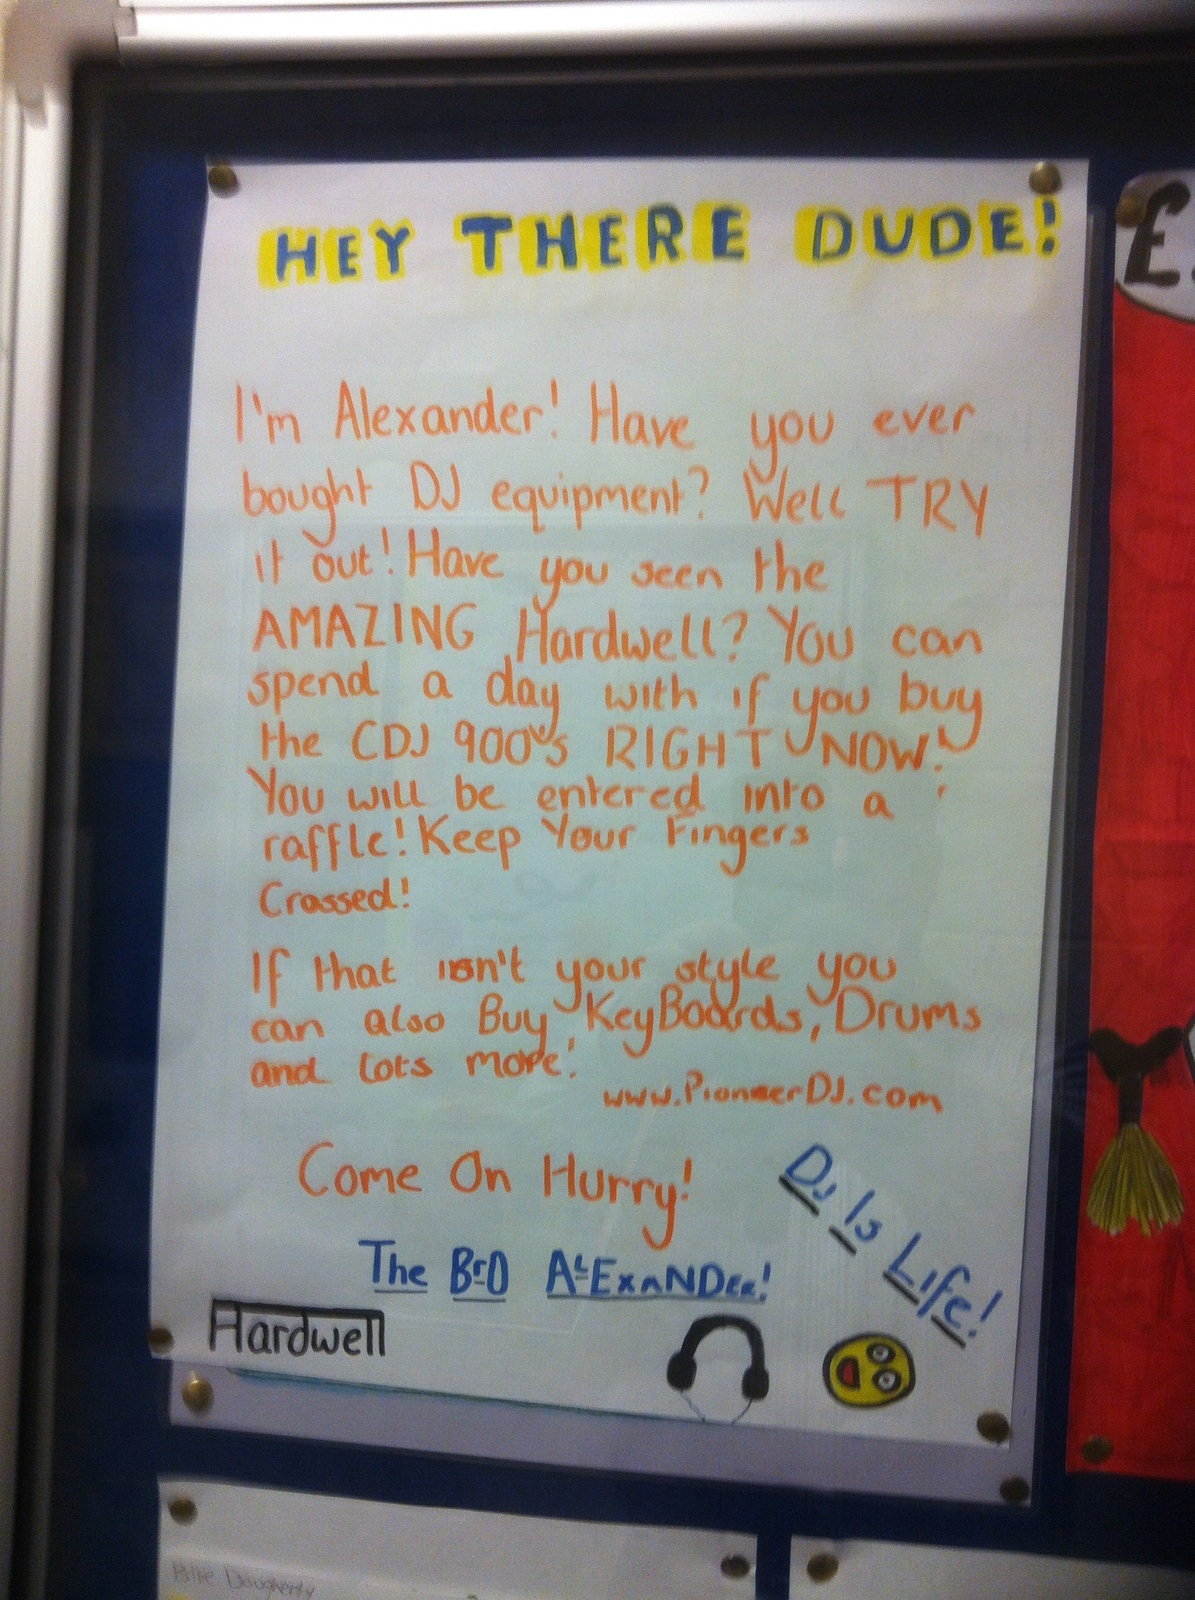 HEY THERE DUDE!
I'm Alexander! Have you ever
bought DJ equipment? Well TRY
it out! Have you seen the
AMAZING Hardwell? You can
spend a day with if you buy
the CDJ 900's RIGHT NOW!
You will be entered into a
raffle! Keep Your Fingers
Crossed!
If that isn't your style you
can also Buy KeyBoards, Drums
and lots more!
www.PioneerDJ.com
Come On Hurry!
DJ Is Life!
The BrO ALExaNDer!
Hardwell
£
Dougherty